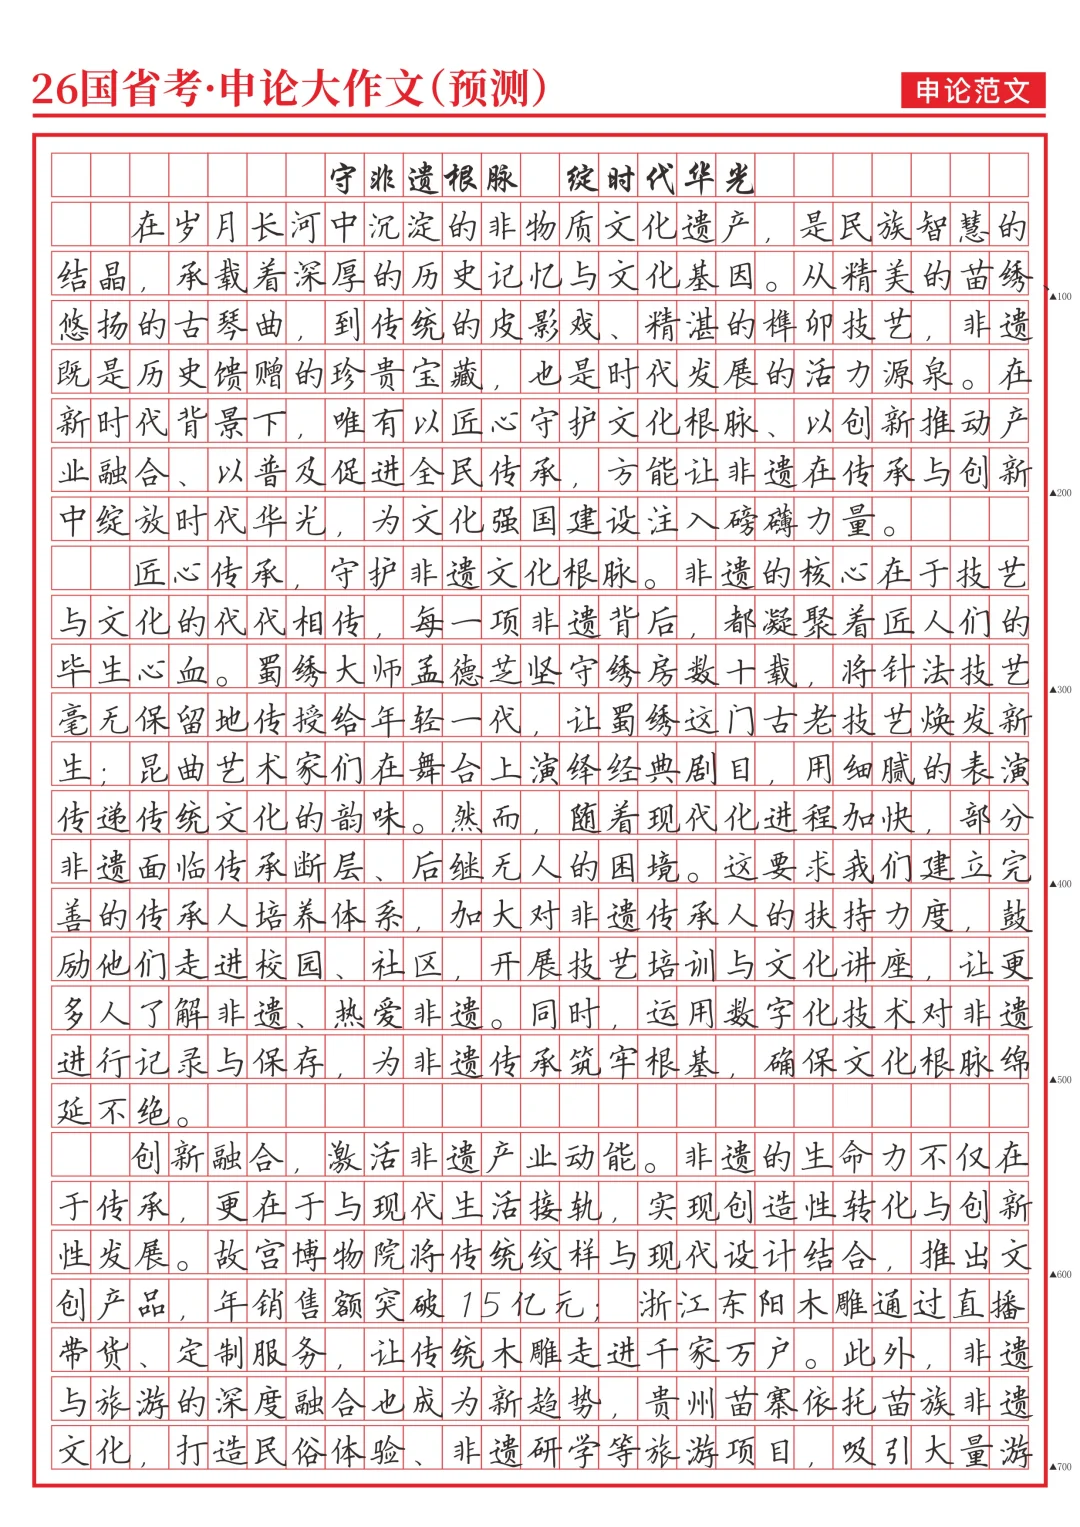 26国省考·申论大作文(预测)
申论范文
守非遗根脉 绽时代华光
在岁月长河中沉淀的非物质文化遗产，是民族智慧的
结晶，承载着深厚的历史记忆与文化基因。从精美的苗绣、
▲100
悠扬的古琴曲，到传统的皮影戏、精湛的榫卯技艺，非遗
既是历史馈赠的珍贵宝藏，也是时代发展的活力源泉。在
新时代背景下，唯有以匠心守护文化根脉、以创新推动产
业融合、以普及促进全民传承，方能让非遗在传承与创新
▲200
中绽放时代华光，为文化强国建设注入磅礴力量。
匠心传承，守护非遗文化根脉。非遗的核心在于技艺
与文化的代代相传，每一项非遗背后，都凝聚着匠人们的
毕生心血。蜀绣大师孟德芝坚守绣房数十载，将针法技艺
▲300
毫无保留地传授给年轻一代，让蜀绣这门古老技艺焕发新
生；昆曲艺术家们在舞台上演绎经典剧目，用细腻的表演
传递传统文化的韵味。然而，随着现代化进程加快，部分
非遗面临传承断层、后继无人的困境。这要求我们建立完
▲400
善的传承人培养体系，加大对非遗传承人的扶持力度，鼓
励他们走进校园、社区，开展技艺培训与文化讲座，让更
多人了解非遗、热爱非遗。同时，运用数字化技术对非遗
进行记录与保存，为非遗传承筑牢根基，确保文化根脉绵
▲500
延不绝。
创新融合，激活非遗产业动能。非遗的生命力不仅在
于传承，更在于与现代生活接轨，实现创造性转化与创新
性发展。故宫博物院将传统纹样与现代设计结合，推出文
▲600
创产品，年销售额突破15亿元；浙江东阳木雕通过直播
带货、定制服务，让传统木雕走进千家万户。此外，非遗
与旅游的深度融合也成为新趋势，贵州苗寨依托苗族非遗
文化，打造民俗体验、非遗研学等旅游项目，吸引大量游
▲700